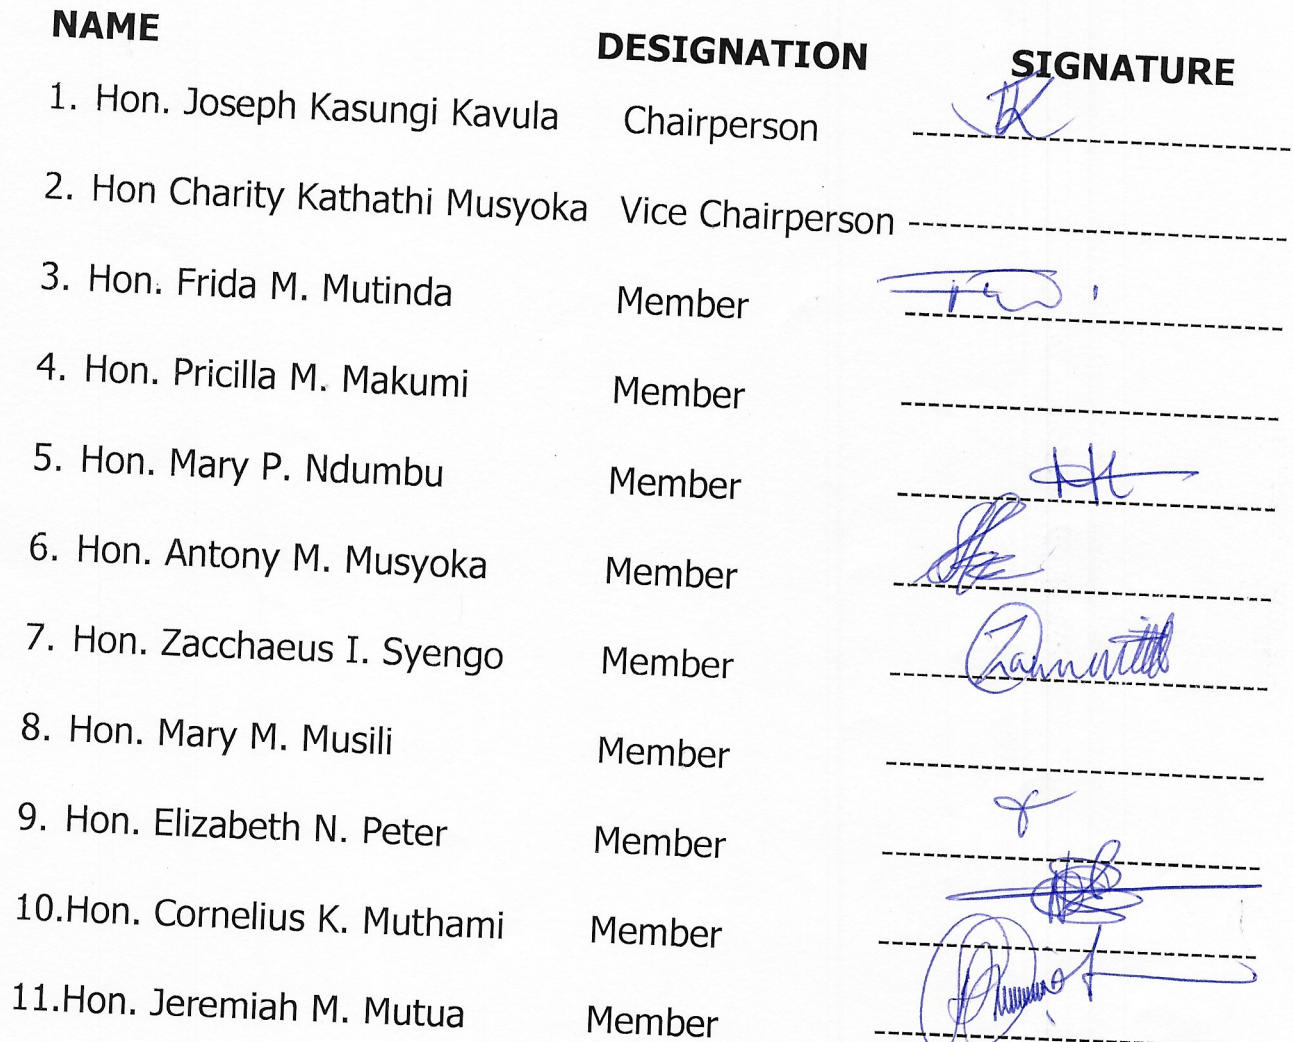 NAME DESIGNATION SIGNATURE
1. Hon. Joseph Kasungi Kavula Chairperson
2. Hon Charity Kathathi Musyoka Vice Chairperson
3. Hon. Frida M. Mutinda Member
4. Hon. Pricilla M. Makumi Member
5. Hon. Mary P. Ndumbu Member
6. Hon. Antony M. Musyoka Member
7. Hon. Zacchaeus I. Syengo Member
8. Hon. Mary M. Musili Member
9. Hon. Elizabeth N. Peter Member
10.Hon. Cornelius K. Muthami Member
11.Hon. Jeremiah M. Mutua Member